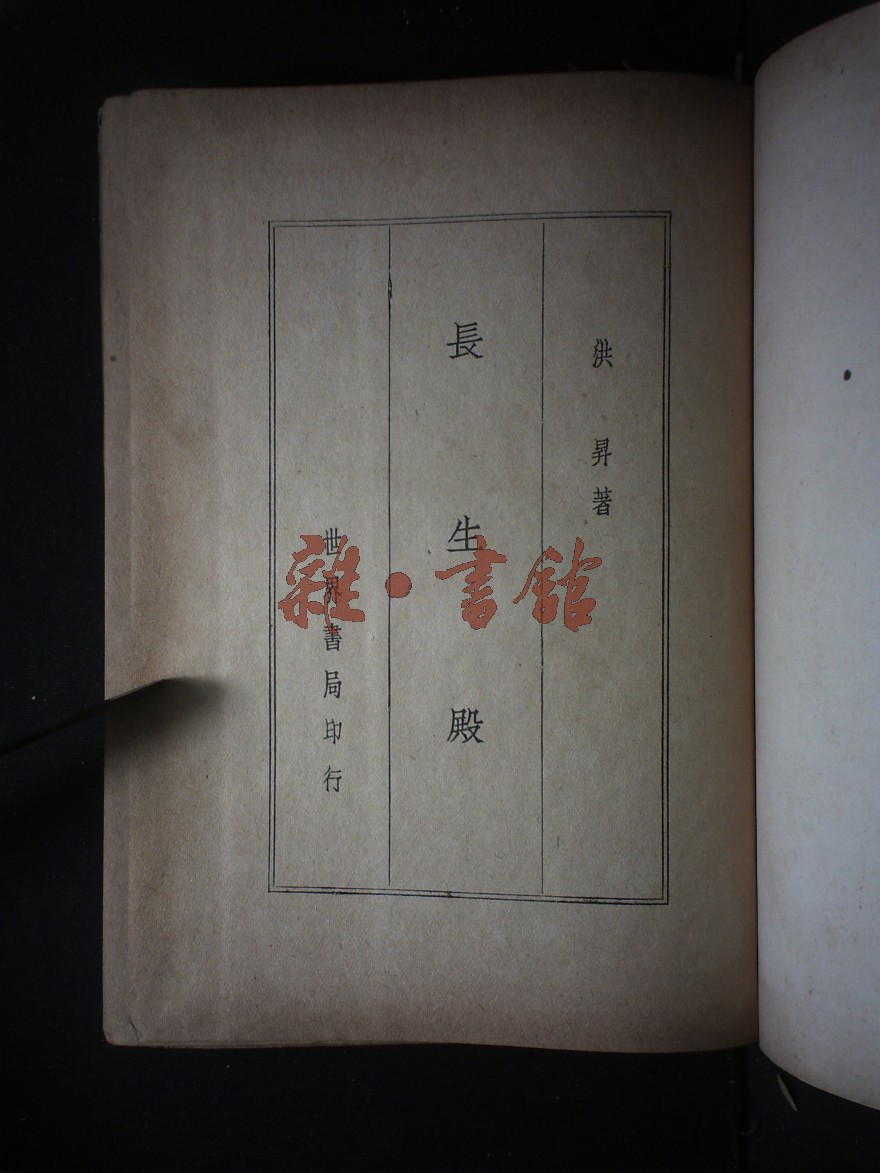 洪昇著
長生殿
世界書局印行
雜·書館